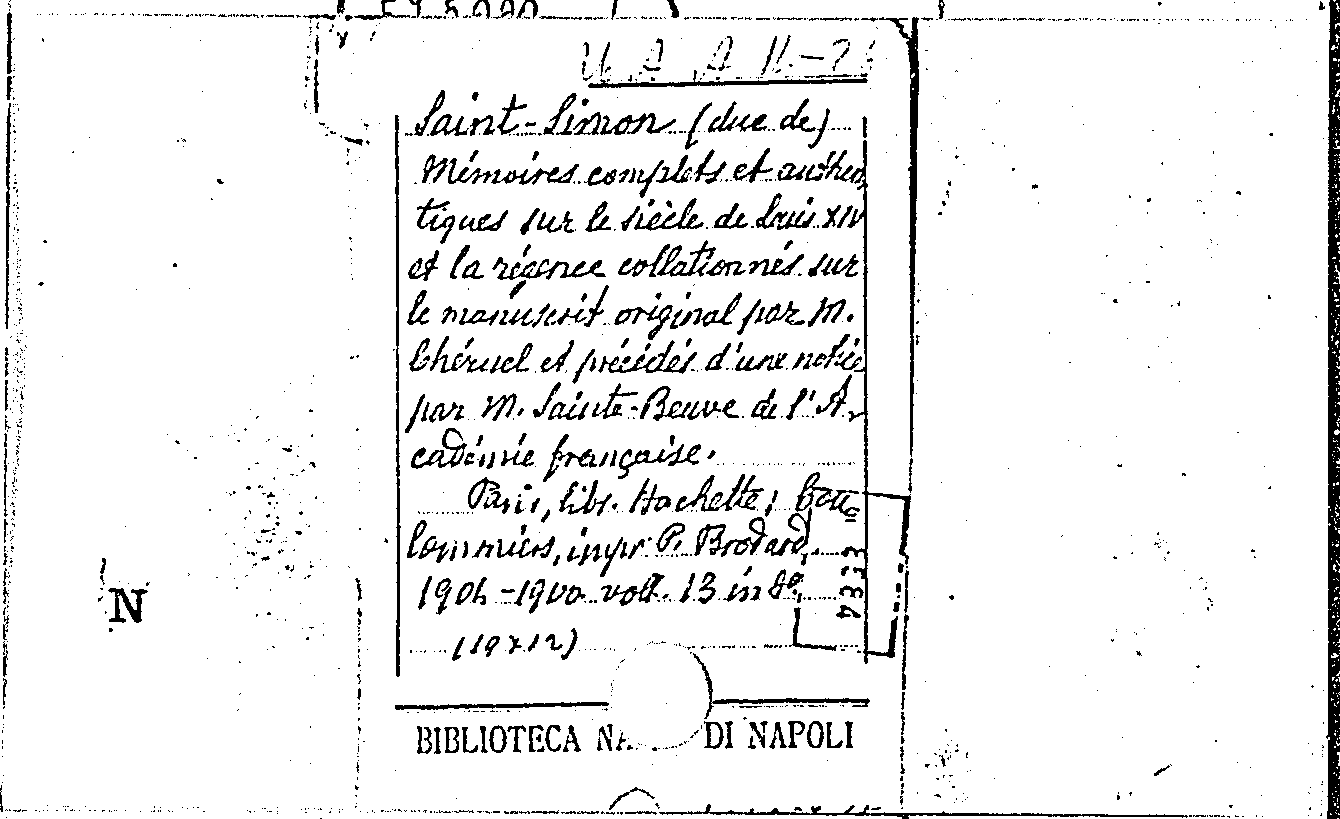 Saint-Simon (duc de)
Mémoires complets et authen
tiques sur le siècle de Louis XIV
et la régence collationnés sur
le manuscrit original par M.
Chéruel et précédés d'une notice
par M. Sainte-Beuve de l'A-
cadémie française.
Paris, libr. Hachette; Cou=
lommiers, impr. P. Brodard,
1904-1900 voll. 13 in 8°.
(19×12)
N
BIBLIOTECA DI NAPOLI